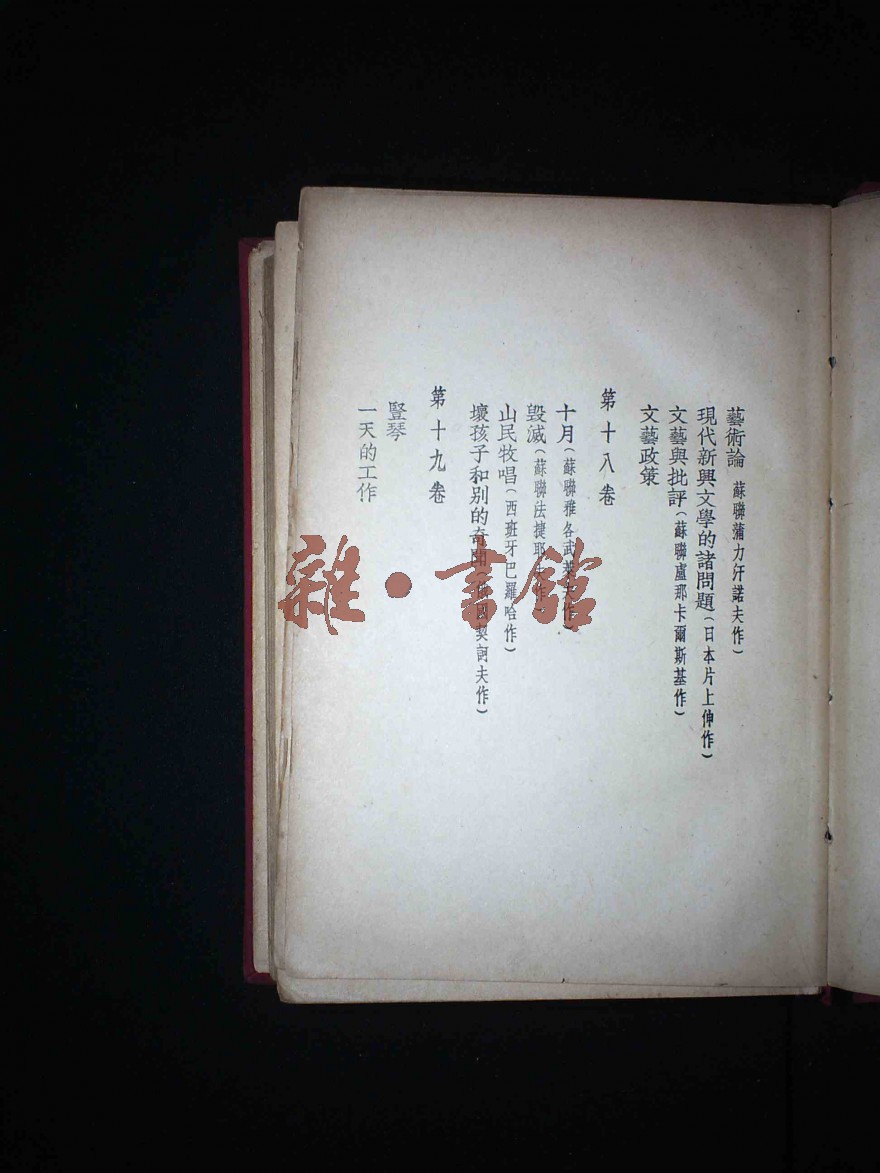 藝術論 蘇聯蒲力汗諾夫作)
現代新興文學的諸問題(日本片上伸作)
文藝與批評(蘇聯盧那卡爾斯基作)
文藝政策
第十八卷
十月(蘇聯雅各武萊夫作)
毀滅(蘇聯法捷耶夫作)
山民牧唱(西班牙巴羅哈作)
壞孩子和別的奇聞(俄國契訶夫作)
第十九卷
豎琴
一天的工作
雜·書館